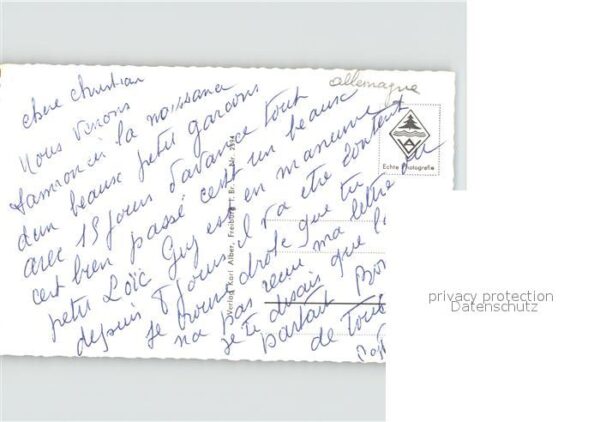 allemagne
chere christian
Nous Venons
d'annoncer la naissance
dun beaux petit garcons
avec 15 jours d'avance tout
cest bien passé c'est un beaux
petit Loïc Guy est en manœuvre
depuis 8 jours il va etre content
je trouve drole que tu
na pas recue ma lettre ou
je te disais que l
partout Bon
de tous
Echte Photografie
Verlag Karl Alber, Freiburg i. Br.
privacy protection
Datenschutz